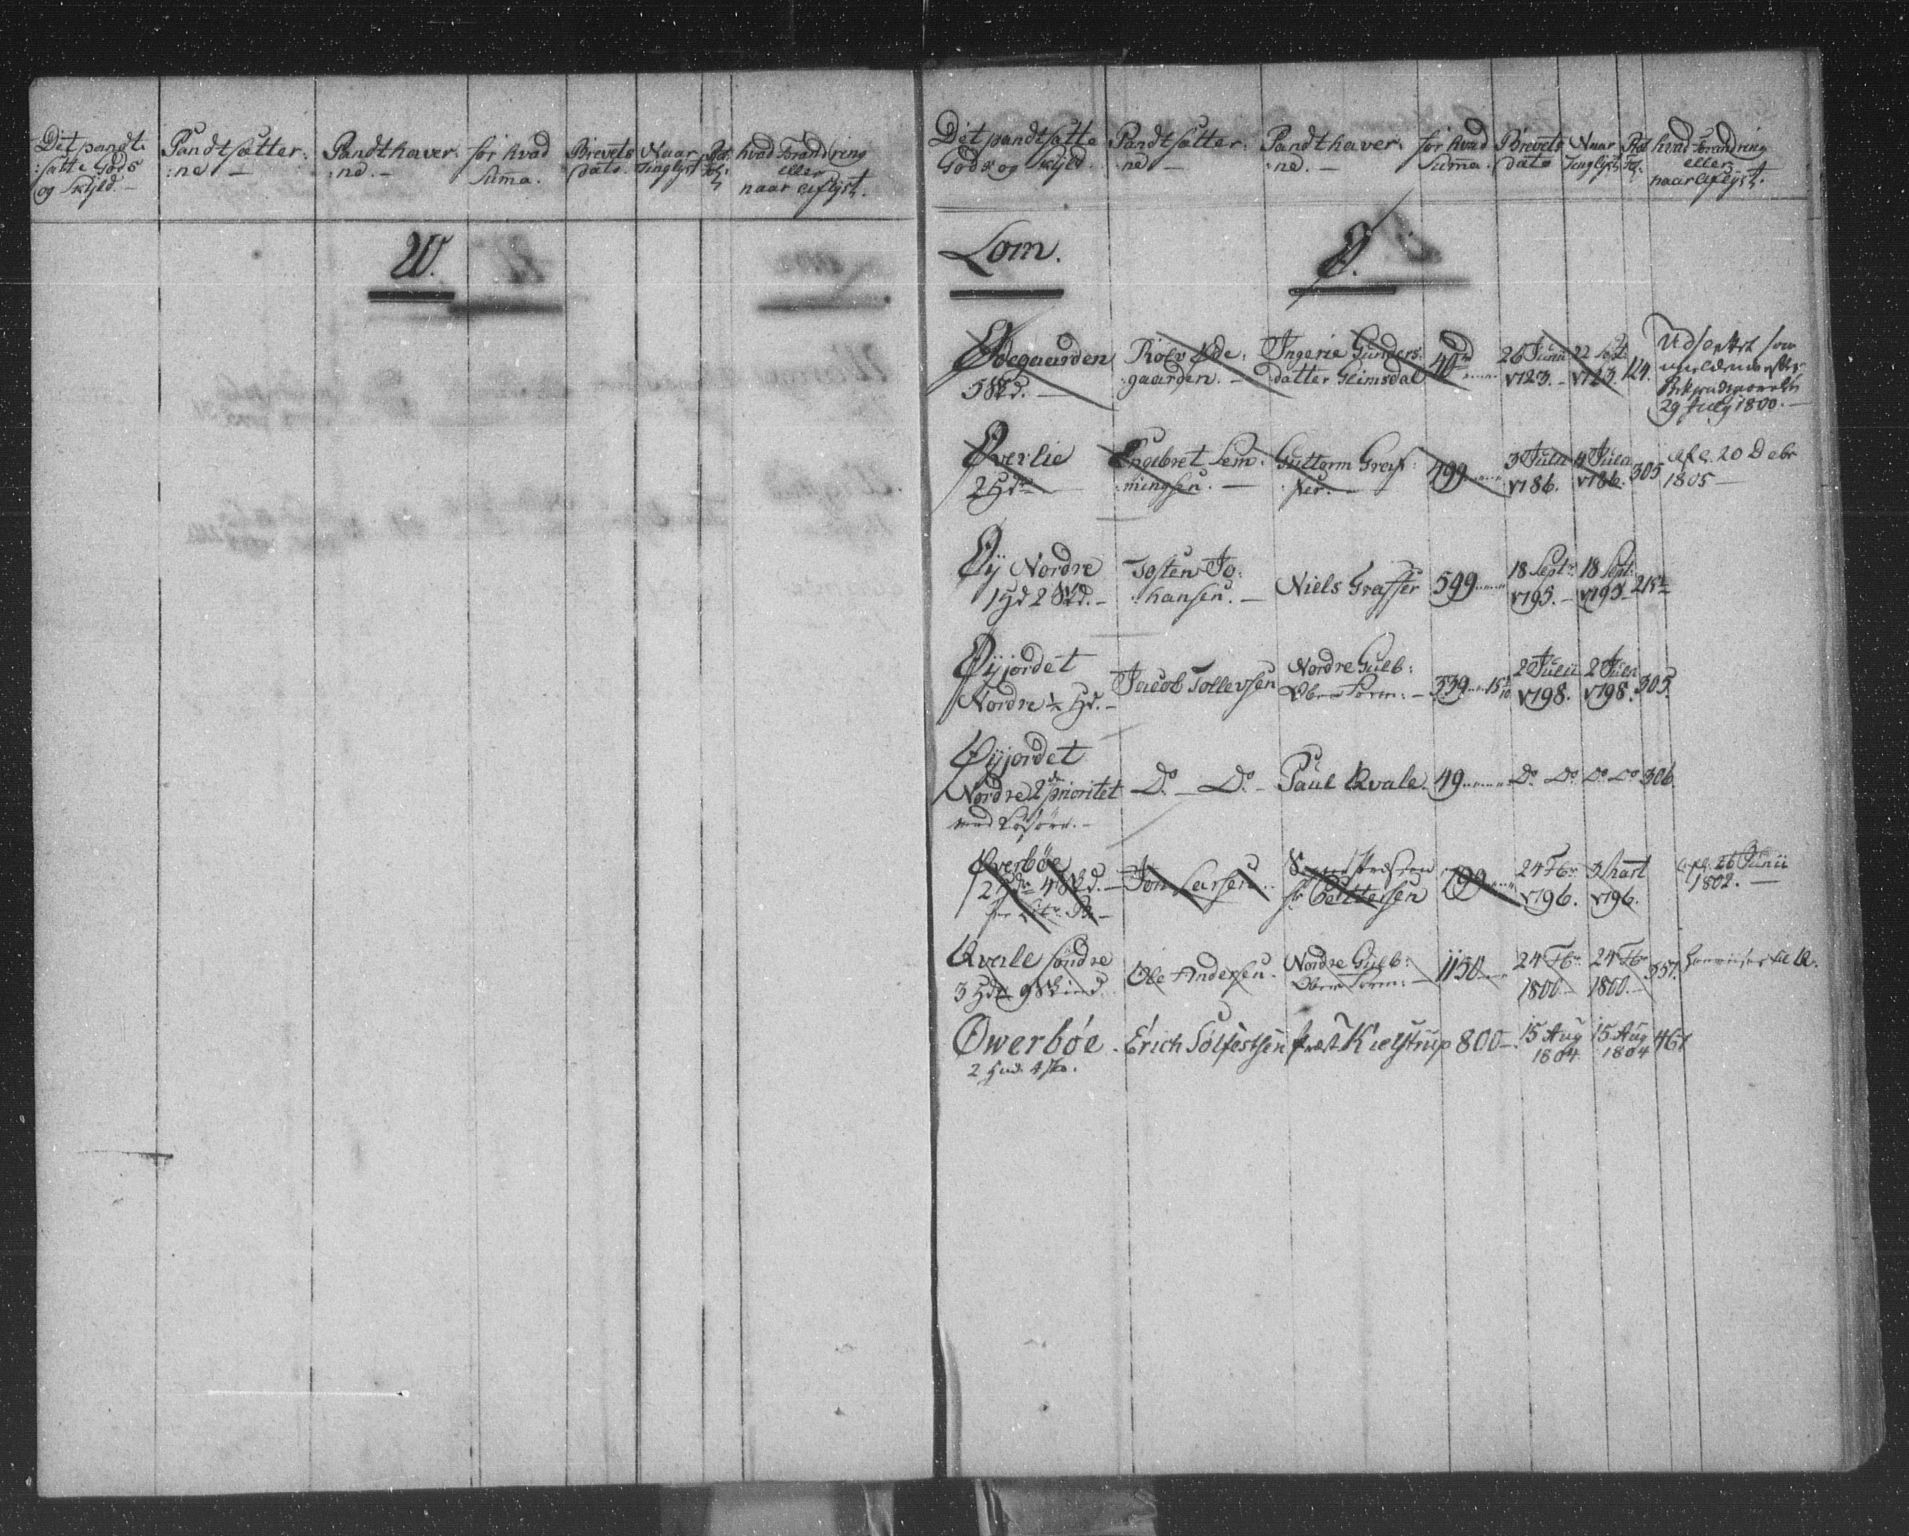 Det pandt:
:satte Gods
og Skyld.
Pandtsætter:
:ne
Pandthaver:
:ne.
for hvad
Summa.
Brevets
dato.
Naar
Tinglyst
Pot:
Fol:
hvad Forandring
eller
naar Aflyst.
W.
Det pandtsatte
Gods og Skyld.
Pandtsætter:
:ne
Pandthaver:
:ne.
for hvad
Summa.
Brevets
dato
Naar
Tinglyst
Pot
Fol:
hvad Forandring
eller
naar Aflyst.
Lom.
Ø.
Ødegaarden
5 Skd.
Rolv Øde:
:gaarden.
Ingerie Gunders:
datter Glimsdal
40 rd
26 Junii
1723.
22 Sept
1723.
124.
Udslettet som
29 July 1800.
Øverlie
2 Hdr
Engebret Lem:
:mingsen.
Guttorm Graf:
:fer.
499
3 Julii
1786.
4 Julii
1786.
305
afl. 20 Debr
1805
Øy Nordre
1 Hd 2 Skd.
Tosten Jo:
:hansen.
Niels Graffer
599
18 Septr
1795.
18 Sept:
1795
215
Øyjordet
Nordre ½ Hd.
Jacob Tollevsen
Nordre Gulb:
Øvre Form:
339 15
2 Julii
1798.
2 Julii
1798.
305
Øyjordet
Nordre 2de prioritet
med Løsøre.
Do. Do.
Paul Qvale.
49
Do. Do
Do Do
306.
Øverbøe
2 Hdr 4 Skd.
Jon Larsen
Sr Cetttersen
199
24 Fbr
1796.
3 Mart
1796.
afl. 26 Junii
1802.
Qvale Søndre
3 Hdr 9 Skind.
Ole Andersen.
Nordre Gulb:
Øvre Form:
1150
24 Fbr
1800
24 Fbr
1800.
357.
henvises til Q.
Øwerbøe
2 Hud. 4 Sk.
Erich Sølfestsen
Præst Kielstrup
800
15 Aug
1804
15 Aug
1804
461